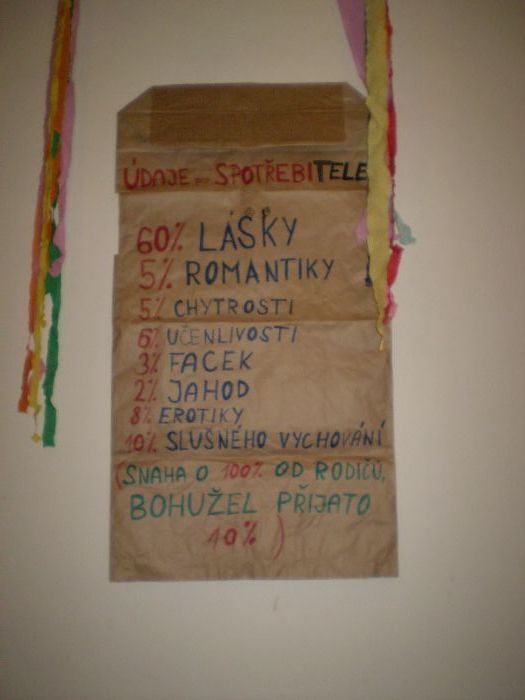 ÚDAJE pro SPOTŘEBITELE
60% LÁSKY
5% ROMANTIKY
5% CHYTROSTI
6% UČENLIVOSTI
3% FACEK
2% JAHOD
8% EROTIKY
10% SLUŠNÉHO VYCHOVÁNÍ
(SNAHA O 100% OD RODIČŮ,
BOHUŽEL PŘIJATO
10% )